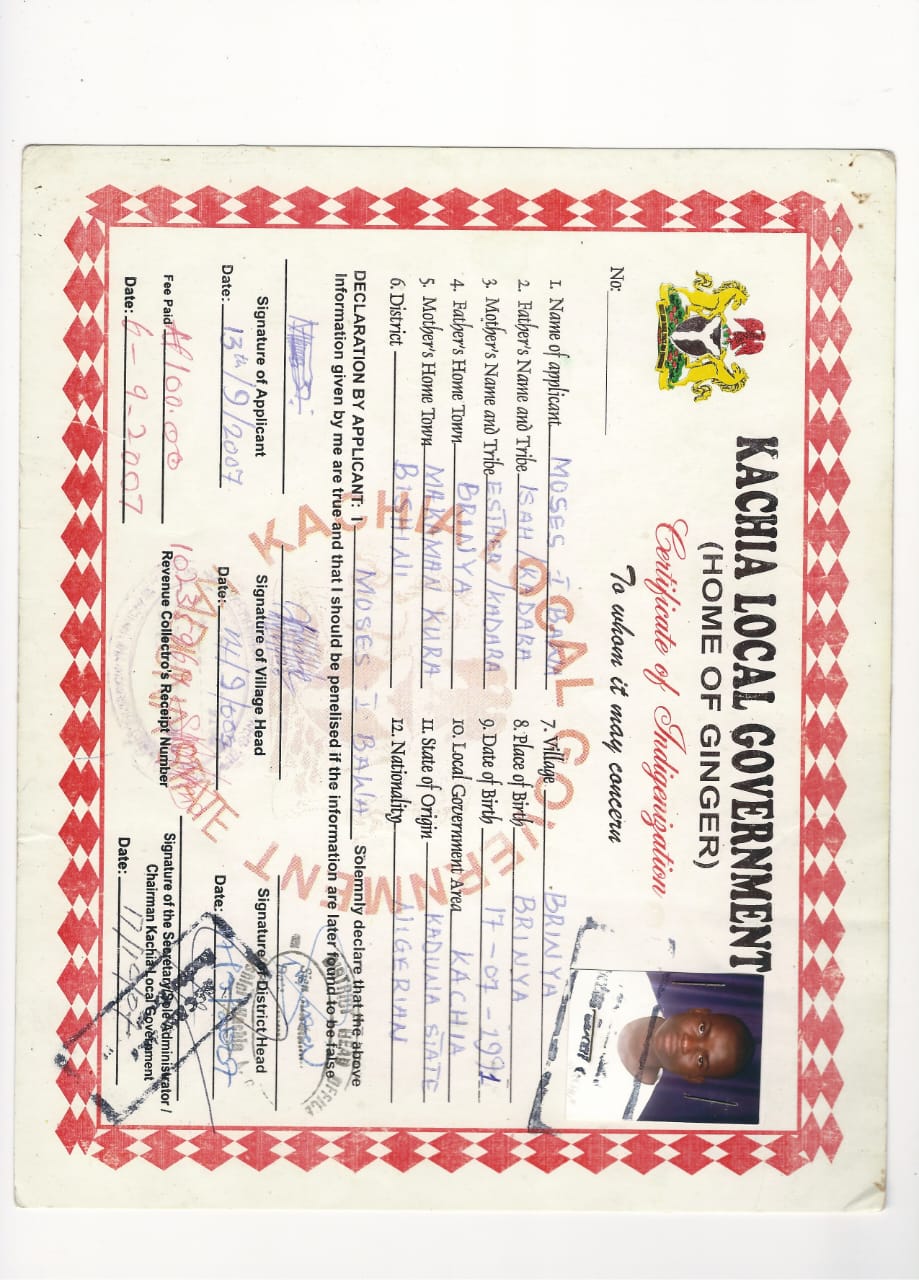 KACHIA LOCAL GOVERNMENT
(HOME OF GINGER)
Certificate of Indigenization
To whom it may concern
No:
1. Name of applicant MOSES I BAWA
2. Father's Name and Tribe ISAH/KADARA
3. Mother's Name and Tribe ESTHER/KADARA
4. Father's Home Town BRINYA
5. Mother's Home Town MAKAMAN KURA
6. District BISHINI
7. Village BRINYA
8. Place of Birth BRINYA
9. Date of Birth 17-07-1991
10. Local Government Area KACHIA
11. State of Origin KADUNA STATE
12. Nationality NIGERIAN
DECLARATION BY APPLICANT: I MOSES I BAWA Solemnly declare that the above
Information given by me are true and that I should be penelised if the information are later found to be false
Signature of Applicant
Date: 13th/9/2007
Signature of Village Head
Date:
Signature of District/Head
Date:
Fee Paid ₦100.00
Date: 6-9-2007
Revenue Collectro's Receipt Number
Signature of the Secretary/Sole Administrator/
Chairman Kachia Local Government
Date:
KACHIA LOCAL GOVERNMENT
DISTRICT HEAD OFFICE